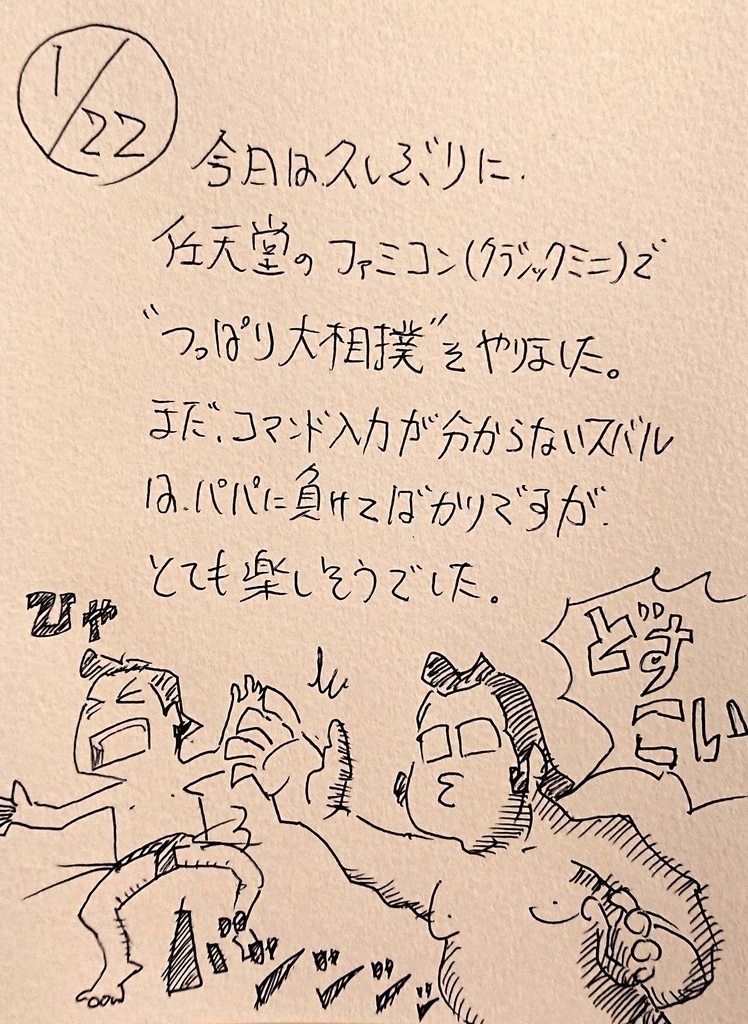 1/22
今日は、久しぶりに、
任天堂のファミコン(クラシックミニ)で
“つっぱり大相撲”をやりました。
まだ、コマンド入力が分からないスバル
は、パパに負けてばかりですが、
とても楽しそうでした。
ひゃ
どす
こい